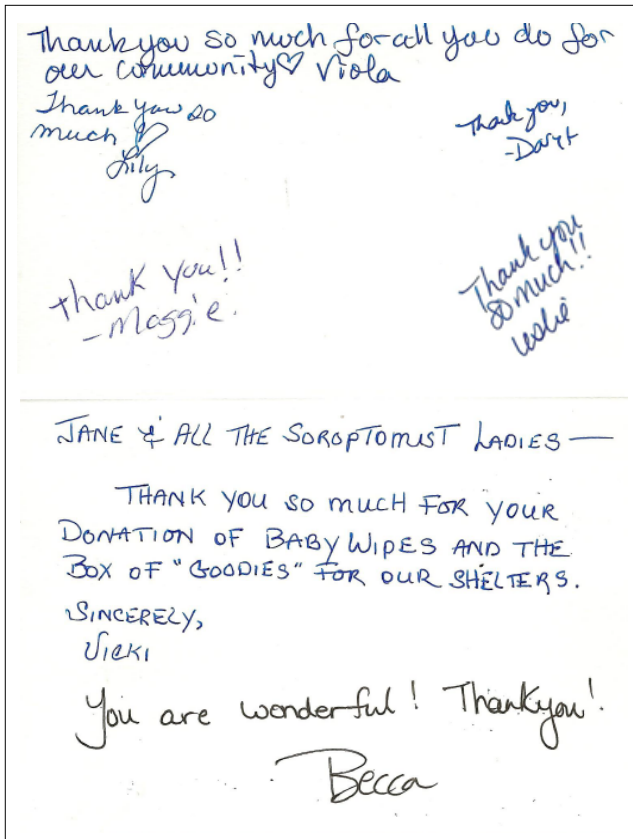 Thank you so much for all you do for
our community♡ Viola
Thank you so
much ♡
Lily
Thank you,
-Daryl
thank you!!
-Maggie.
Thank you
so much!!
Leslie
JANE & ALL THE SOROPTOMIST LADIES —
THANK YOU SO MUCH FOR YOUR
DONATION OF BABY WIPES AND THE
BOX OF "GOODIES" FOR OUR SHELTERS.
SINCERELY,
VICKI
You are wonderful! Thankyou!
Becca